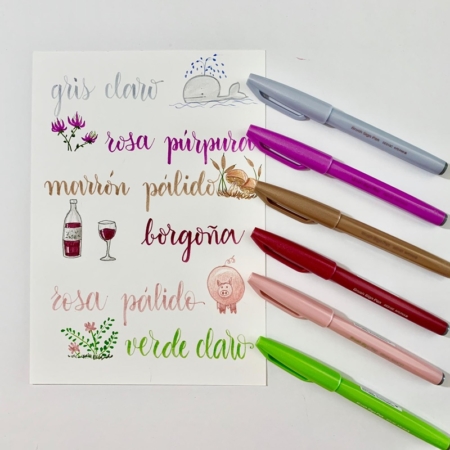 gris claro
rosa púrpura
marrón pálido
borgoña
rosa pálido
verde claro